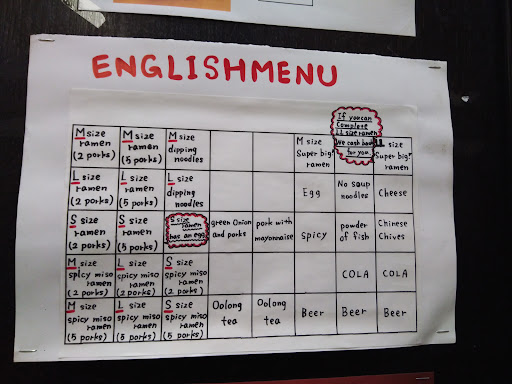 ENGLISHMENU
If you can
Complete
LL size ramen
We cash back
for you
M size
ramen
(2 porks)
M size
ramen
(5 porks)
M size
dipping
noodles
M size
Super big!
ramen
LL size
Super big!
ramen
L size
ramen
(2 porks)
L size
ramen
(5 porks)
L size
dipping
noodles
Egg
No soup
noodles
Cheese
S size
ramen
(2 porks)
S size
ramen
(5 porks)
S size
ramen
has an egg
green Onion
and porks
pork with
mayonnaise
Spicy
powder
of fish
Chinese
Chives
M size
spicy miso
ramen
(2 porks)
L size
spicy miso
ramen
(2 porks)
S size
spicy miso
ramen
(2 porks)
COLA
COLA
M size
spicy miso
ramen
(5 porks)
L size
spicy miso
ramen
(5 porks)
S size
spicy miso
ramen
(5 porks)
Oolong
tea
Oolong
tea
Beer
Beer
Beer